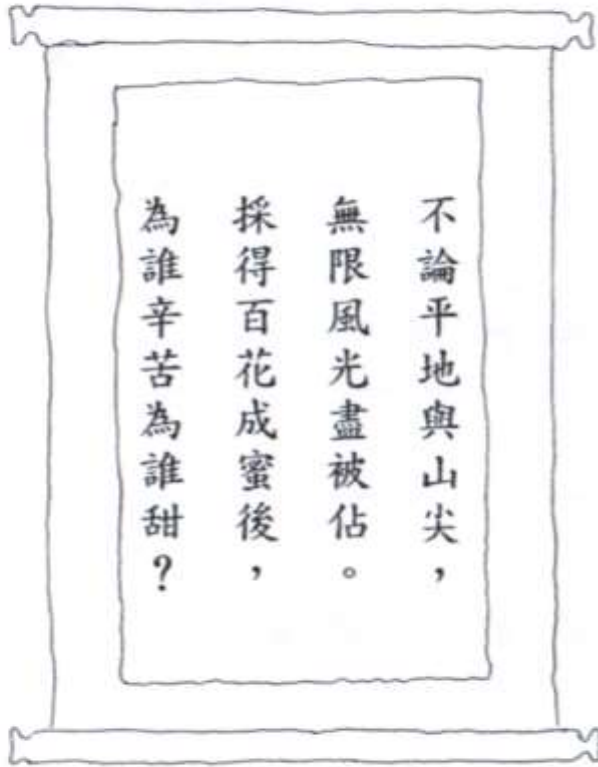 不論平地與山尖，
無限風光盡被佔。
採得百花成蜜後，
為誰辛苦為誰甜？